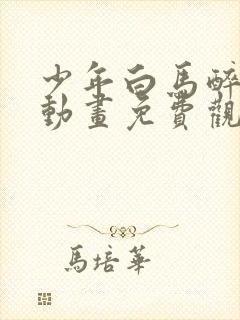 少年白馬醉
動畫免費觀
馬培華